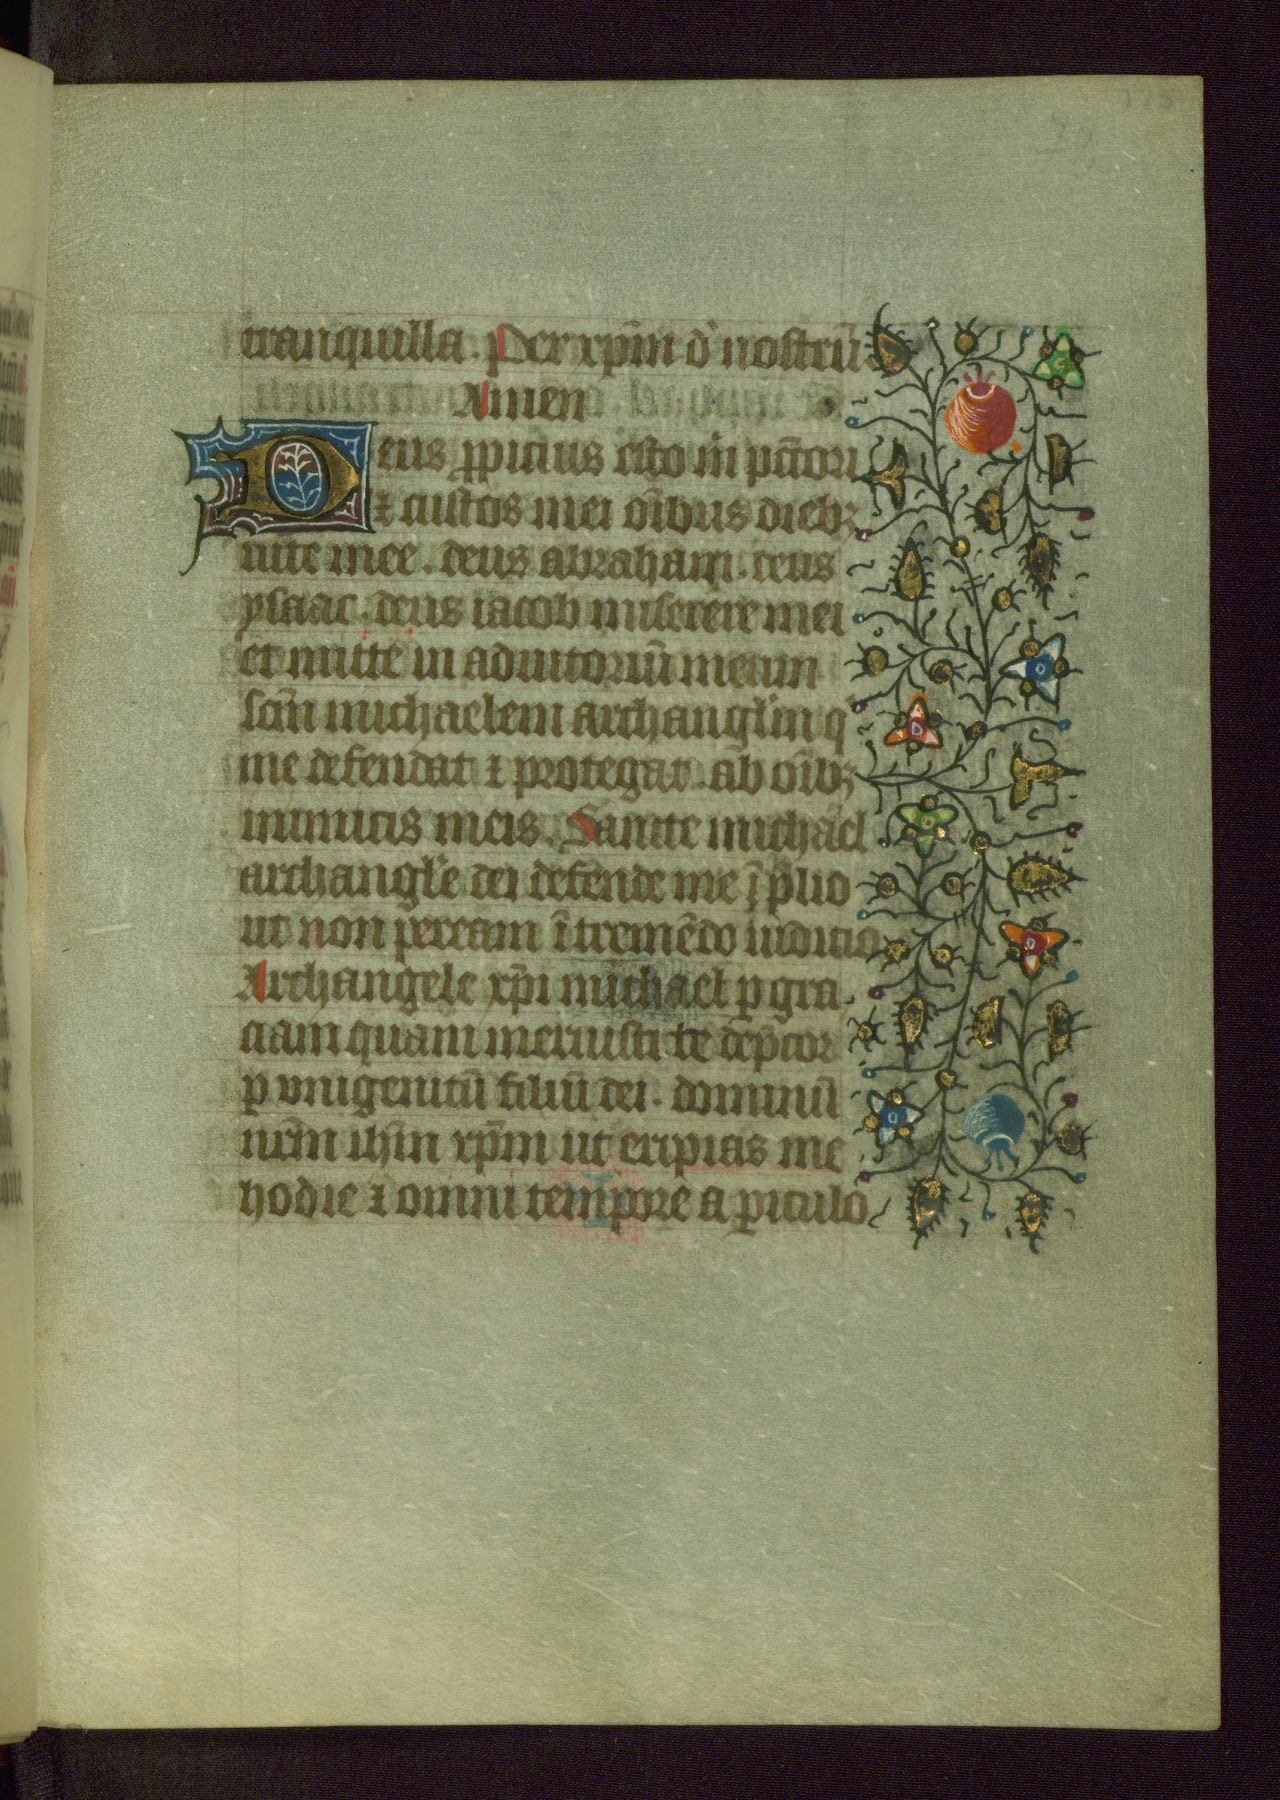 tranquilla. Per xp̄m d̄ nostrū
Amen
Deus ꝓpicius esto m̄ pcc̄ori
⁊ custos mei oīb us diebꝫ
uite mee. deus abraham. deus
ysaac. deus iacob miserere mei
et mitte in adiutoriū meum
scm̄ michaelem archangl̄m q̄
me defendat ⁊ protegat. ab oībꝫ
inimicis meis. Sancte michael
archangle dei defende me ī p̄lio
ut non peream ī tremēdo iudicio
Archangele xp̄i michael ꝑ gra
ciam quam meruisti te dep̄cor
ꝑ vnigenitū filiū dei. dominū
nr̄m ih̄m xp̄m ut eripias me
hodie ⁊ omni tempore a ꝑiculo